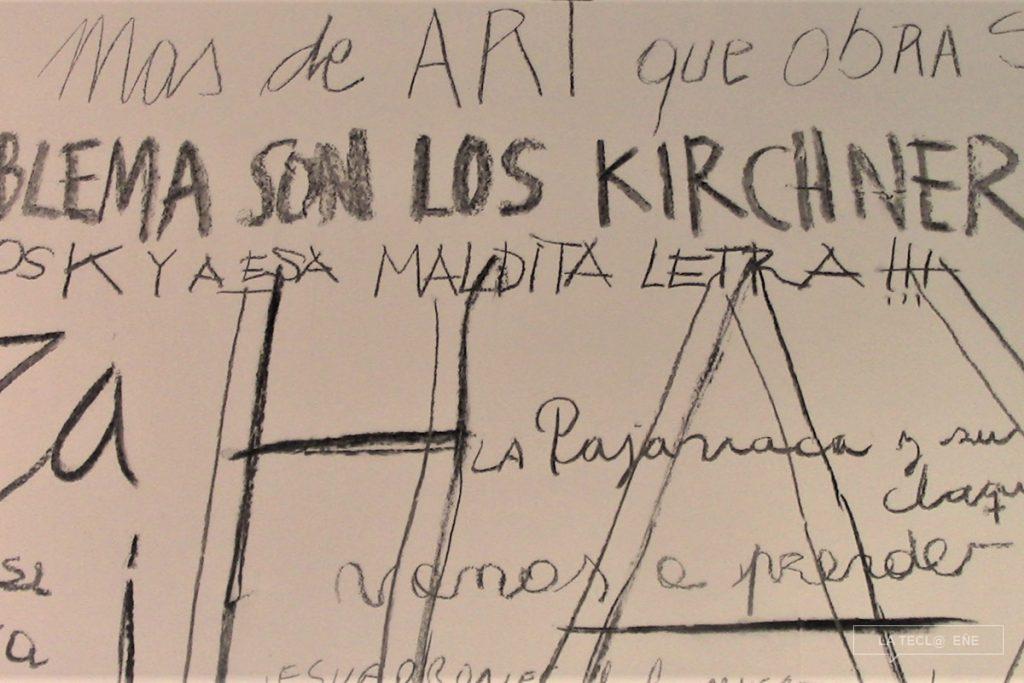 Mas de ART que ObRA S
BLEMA SON LOS KIRCHNER
OS K Y A ESA MALDITA LETRA !!!
za
HA
LA Pajarraca y sus
claqu
i vamos a prender
LA TECL@ EÑE